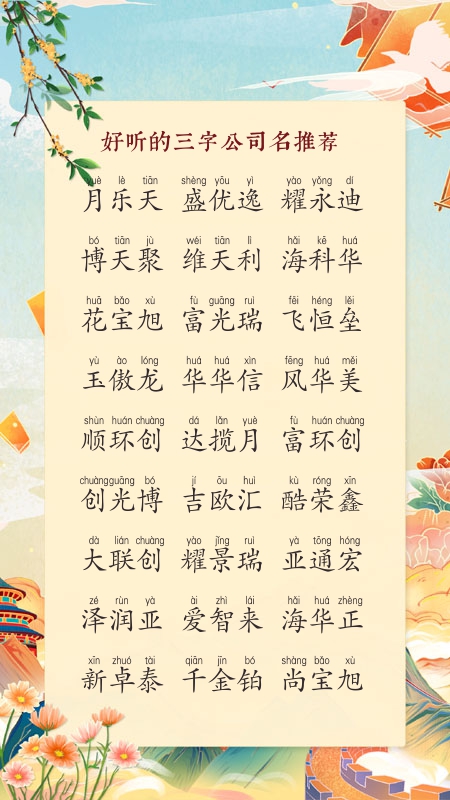 好听的三字公司名推荐
yuè lè tiān shèng yōu yì yào yǒng dí
月乐天 盛优逸 耀永迪
bó tiān jù wéi tiān lì hǎi kē huá
博天聚 维天利 海科华
huā bǎo xù fù guāng ruì fēi héng lěi
花宝旭 富光瑞 飞恒垒
yù ào lóng huá huá xìn fēng huá měi
玉傲龙 华华信 风华美
shùn huán chuàng dá lǎn yuè fù huán chuàng
顺环创 达揽月 富环创
chuàng guāng bó jí ōu huì kù róng xīn
创光博 吉欧汇 酷荣鑫
dà lián chuàng yào jǐng ruì yà tōng hóng
大联创 耀景瑞 亚通宏
zé rùn yà ài zhì lái hǎi huá zhèng
泽润亚 爱智来 海华正
xīn zhuó tài qiān jīn bó shàng bǎo xù
新卓泰 千金铂 尚宝旭